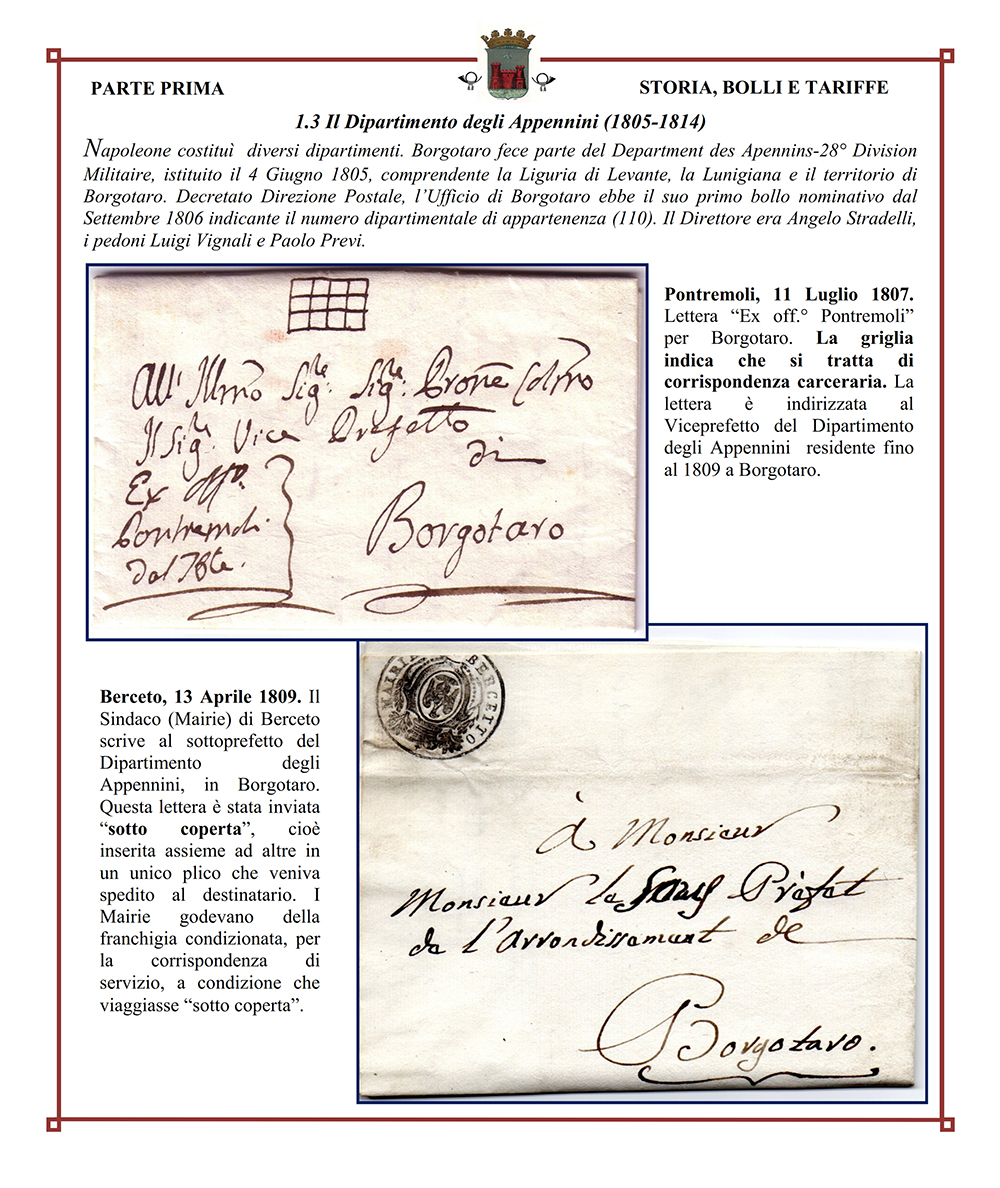 PARTE PRIMA
STORIA, BOLLI E TARIFFE
1.3 Il Dipartimento degli Appennini (1805-1814)
Napoleone costituì diversi dipartimenti. Borgotaro fece parte del Department des Apennins-28° Division
Militaire, istituito il 4 Giugno 1805, comprendente la Liguria di Levante, la Lunigiana e il territorio di
Borgotaro. Decretato Direzione Postale, l’Ufficio di Borgotaro ebbe il suo primo bollo nominativo dal
Settembre 1806 indicante il numero dipartimentale di appartenenza (110). Il Direttore era Angelo Stradelli,
i pedoni Luigi Vignali e Paolo Previ.
All' Illmo Sigre: Sigre: Prone Colmo
Il Sigre Vice Prefetto
di
Ex Offo.
Pontremoli
dal
Borgotaro
Pontremoli, 11 Luglio 1807.
Lettera “Ex off.° Pontremoli”
per Borgotaro. La griglia
indica che si tratta di
corrispondenza carceraria. La
lettera è indirizzata al
Viceprefetto del Dipartimento
degli Appennini residente fino
al 1809 a Borgotaro.
Berceto, 13 Aprile 1809. Il
Sindaco (Mairie) di Berceto
scrive al sottoprefetto del
Dipartimento degli
Appennini, in Borgotaro.
Questa lettera è stata inviata
“sotto coperta”, cioè
inserita assieme ad altre in
un unico plico che veniva
spedito al destinatario. I
Mairie godevano della
franchigia condizionata, per
la corrispondenza di
servizio, a condizione che
viaggiasse “sotto coperta”.
MAIRIE BERCETTO
à Monsieur
Monsieur le Sous Prèfet
de l'Arrondissement de
Borgotaro.